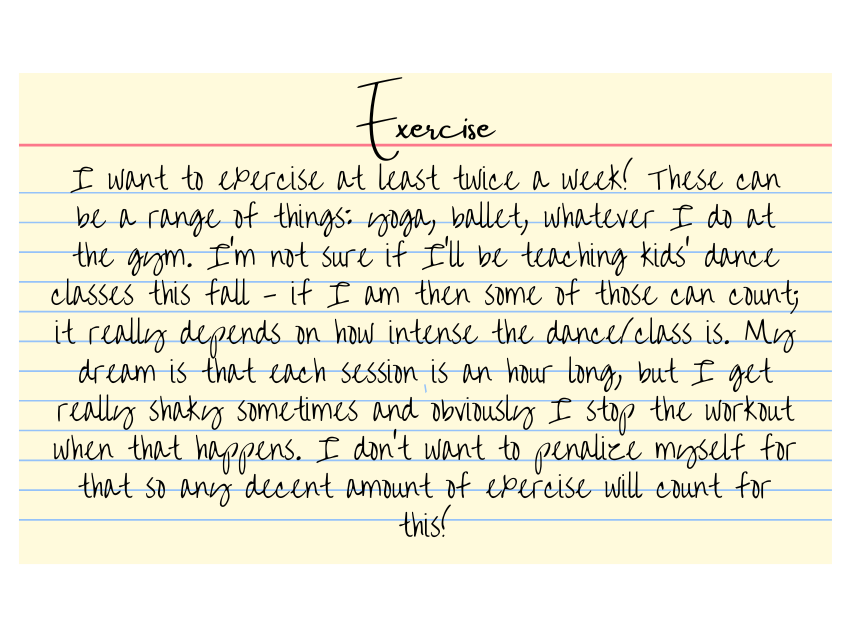 Exercise
I want to exercise at least twice a week! These can
be a range of things: yoga, ballet, whatever I do at
the gym. I'm not sure if I'll be teaching kids' dance
classes this fall - if I am then some of those can count;
it really depends on how intense the dance/class is. My
dream is that each session is an hour long, but I get
really shaky sometimes and obviously I stop the workout
when that happens. I don't want to penalize myself for
that so any decent amount of exercise will count for
this!